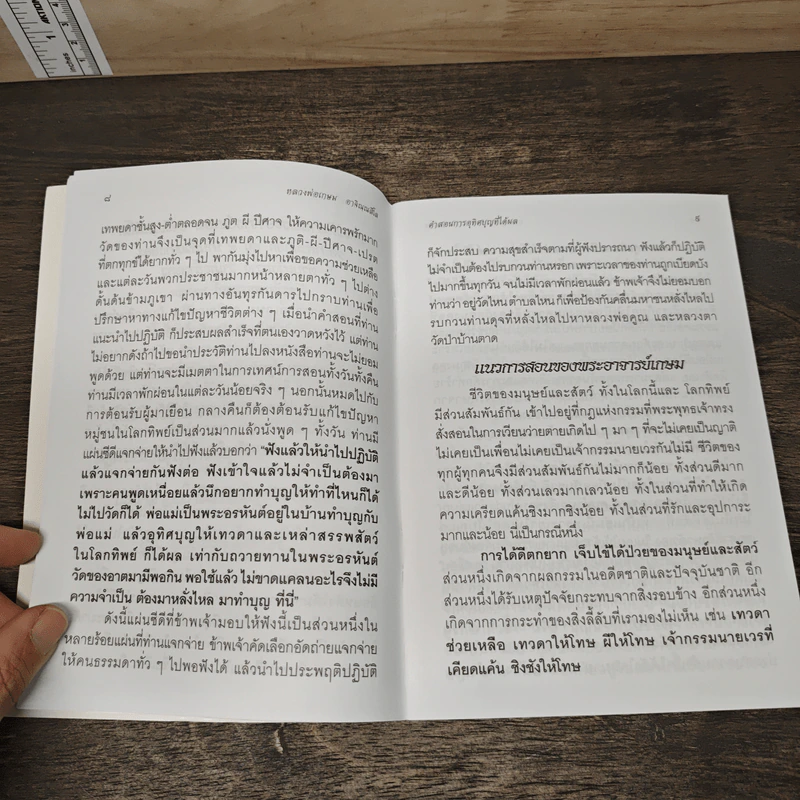 ๘
หลวงพ่อเกษม อาจิณฺณสีโล
เทพยดาชั้นสูง-ต่ำตลอดจน ภูต ผี ปีศาจ ให้ความเคารพรักมาก
วัดของท่านจึงเป็นจุดที่เทพยดาและภูติ-ผี-ปีศาจ-เปรต
ที่ตกทุกข์ได้ยากทั่ว ๆ ไป พากันมุ่งไปหาเพื่อขอความช่วยเหลือ
และแต่ละวันพวกประชาชนมากหน้าหลายตาทั่ว ๆ ไปต่าง
ดั้นด้นข้ามภูเขา ผ่านทางอันทุรกันดารไปกราบท่านเพื่อ
ปรึกษาหาทางแก้ไขปัญหาชีวิตต่าง ๆ เมื่อนำคำสอนที่ท่าน
แนะนำไปปฏิบัติ ก็ประสบผลสำเร็จที่ตนเองวาดหวังไว้ แต่ท่าน
ไม่อยากดังถ้าไปขอนำประวัติท่านไปลงหนังสือท่านจะไม่ยอม
พูดด้วย แต่ท่านจะมีเมตตาในการเทศน์การสอนทั้งวันทั้งคืน
ท่านมีเวลาพักผ่อนในแต่ละวันน้อยจริง ๆ นอกนั้นหมดไปกับ
การต้อนรับผู้มาเยือน กลางคืนก็ต้องต้อนรับแก้ไขปัญหา
หมู่ชนในโลกทิพย์เป็นส่วนมากแล้วนั่งพูด ๆ ทั้งวัน ท่านมี
แผ่นซีดีแจกจ่ายให้นำไปฟังแล้วบอกว่า "ฟังแล้วให้นำไปปฏิบัติ
แล้วแจกจ่ายกันฟังต่อ ฟังเข้าใจแล้วไม่จำเป็นต้องมา
เพราะคนพูดเหนื่อยแล้วนึกอยากทำบุญให้ทำที่ไหนก็ได้
ไม่ไปวัดก็ได้ พ่อแม่เป็นพระอรหันต์อยู่ในบ้านทำบุญกับ
พ่อแม่ แล้วอุทิศบุญให้เทวดาและเหล่าสรรพสัตว์
ในโลกทิพย์ ก็ได้ผล เท่ากับถวายทานในพระอรหันต์
วัดของอาตมามีพอกิน พอใช้แล้ว ไม่ขาดแคลนอะไรจึงไม่มี
ความจำเป็น ต้องมาหลั่งไหล มาทำบุญ ที่นี่"
ดังนี้แผ่นซีดีที่ข้าพเจ้ามอบให้ฟังนี้เป็นส่วนหนึ่งใน
หลายร้อยแผ่นที่ท่านแจกจ่าย ข้าพเจ้าคัดเลือกอัดถ่ายแจกจ่าย
ให้คนธรรมดาทั่ว ๆ ไปพอฟังได้ แล้วนำไปประพฤติปฏิบัติ
คำสอนการอุทิศบุญที่ได้ผล
๙
ก็จักประสบ ความสุขสำเร็จตามที่ผู้ฟังปรารถนา ฟังแล้วก็ปฏิบัติ
ไม่จำเป็นต้องไปรบกวนท่านหรอก เพราะเวลาของท่านถูกเบียดบัง
ไปมากขึ้นทุกวัน จนไม่มีเวลาพักผ่อนแล้ว ข้าพเจ้าจึงไม่ยอมบอก
ท่านว่า อยู่วัดไหน ตำบลไหน ก็เพื่อป้องกันคลื่นมหาชนหลั่งไหลไป
รบกวนท่านดุจที่หลั่งไหลไปหาหลวงพ่อคูณ และหลวงตา
วัดป่าบ้านตาด
แนวการสอนของพระอาจารย์เกษม
ชีวิตของมนุษย์และสัตว์ ทั้งในโลกนี้และ โลกทิพย์
มีส่วนสัมพันธ์กัน เข้าไปอยู่ที่กฎแห่งกรรมที่พระพุทธเจ้าทรง
สั่งสอนในการเวียนว่ายตายเกิดไป ๆ มา ๆ ที่จะไม่เคยเป็นญาติ
ไม่เคยเป็นเพื่อนไม่เคยเป็นเจ้ากรรมนายเวรกันไม่มี ชีวิตของ
ทุกผู้ทุกคนจึงมีส่วนสัมพันธ์กันไม่มากก็น้อย ทั้งส่วนดีมาก
และดีน้อย ทั้งส่วนเลวมากเลวน้อย ทั้งในส่วนที่ทำให้เกิด
ความเครียดแค้นชิงมากชิงน้อย ทั้งในส่วนที่รักและอุปการะ
มากและน้อย นี่เป็นกรณีหนึ่ง
การได้ดีตกยาก เจ็บไข้ได้ป่วยของมนุษย์และสัตว์
ส่วนหนึ่งเกิดจากผลกรรมในอดีตชาติและปัจจุบันชาติ อีก
ส่วนหนึ่งได้รับเหตุปัจจัยกระทบจากสิ่งรอบข้าง อีกส่วนหนึ่ง
เกิดจากการกระทำของสิ่งลี้ลับที่เรามองไม่เห็น เช่น เทวดา
ช่วยเหลือ เทวดาให้โทษ ผีให้โทษ เจ้ากรรมนายเวรที่
เคียดแค้น ชิงชังให้โทษ
inches 1 2 3 4